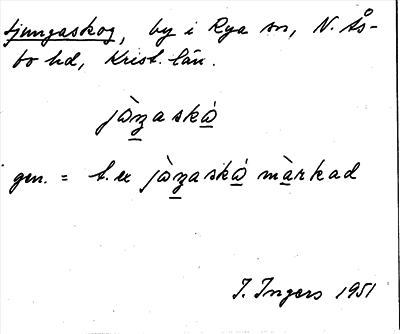 Ljungaskog, by i Rya sn, N. Ås-
bo hd, Krist. län.
jòŋaskó
gen. = t. ex jòŋaskó màrkad
I. Ingers 1951